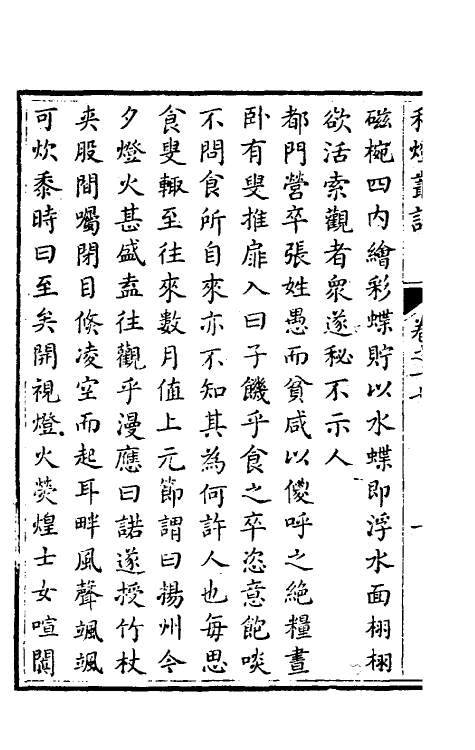 秋燈叢話 卷之十七 一
磁椀四内繪彩蝶貯以水蝶即浮水面栩栩
欲活索觀者衆遂秘不示人
都門營卒張姓愚而貧咸以儍呼之絶糧晝
卧有叟推扉入曰子饑乎食之卒恣意飽啖
不問食所自來亦不知其為何許人也每思
食叟輙至往來數月值上元節謂曰揚州今
夕燈火甚盛盍往觀乎漫應曰諾遂授竹杖
夾股間囑閉目倐凌空而起耳畔風聲颯颯
可炊黍時曰至矣開視燈火熒煌士女喧闐